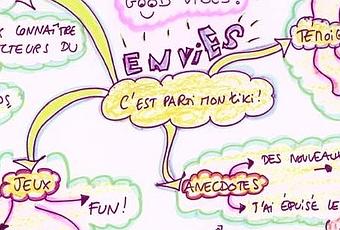 GOOD VIBES!
CONNAÎTRE
CTEURS DU
ENVIES
TÉMOIG
C'EST PARTI MON KIKI!
JEUX
FUN!
ANECDOTES
DES NOUVEAU
J'AI ÉPUISÉ LE